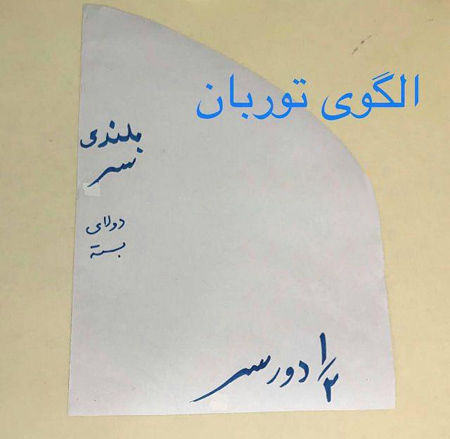 الگوی توربان
بلندی
سر
دولای
بسته
۱/۲ دور سر